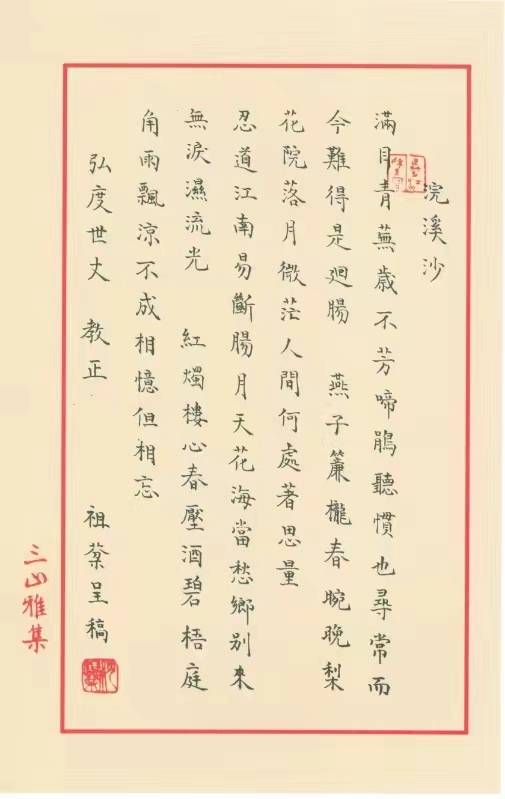 浣溪沙
滿目青蕪歲不芳啼鵑聽慣也尋常而
今難得是迴腸　燕子簾櫳春晼晚梨
花院落月微茫人間何處著思量
忍道江南易斷腸月天花海當愁鄉別來
無淚濕流光　紅燭樓心春壓酒碧梧庭
角雨飄涼不成相憶但相忘
弘度世丈　教正　祖棻呈稿
三山雅集